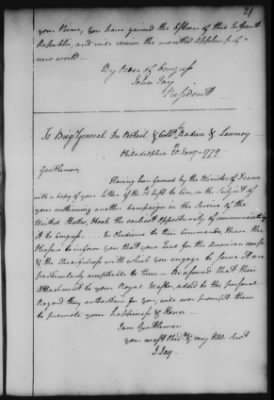 21
your Prince, you have gained the Esteem of this infant
Republic, and will receive the merited Applause of a
new world.
By Order of Congress
John Jay
President
To Brigr General Du Portail & Colls Radiere & Laumoy
Philadelphia 30 Jany 1779
Gentlemen
Having been favored by the Minister of France
with a copy of your Letter of the left to him on the Subject of
your continuing another Campaign in the Service of the
United States, I took the earliest Opportunity of communicating
it to Congress. In Obedience to their Commands I have the
Pleasure to inform you that your Zeal for the American cause
& the chearfulness with which you engage to serve it are
particularly acceptable to them. Be assured that their
Attachment to your Royal Master, added to the personal
Regard they entertain for you, will ever prompt them
to promote your happiness & Honor
I am Gentlemen
your most Obedt & very Hble Servt
J Jay.